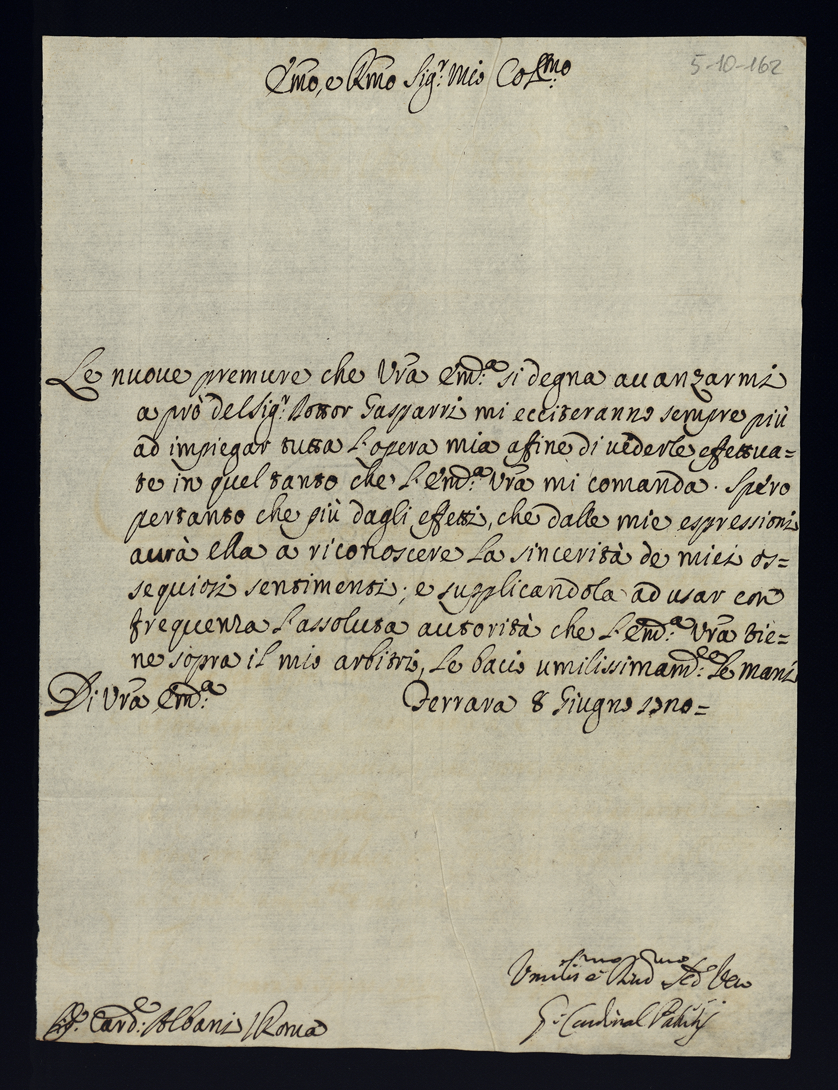 5-10-162
Emo, e Rmo Sig.r Mio Col.mo
Le nuove premure che Vra Em.a si degna avanzarmi
a prò del Sig.r Dottor Gasparri mi ecciteranno sempre più
ad impiegar tutta l'opera mia affine di vederle effettua=
te in quel tanto che l'Em.a Vra mi comanda. Spero
pertanto che più dagli effetti, che dalle mie espressioni
avrà ella a riconoscere la sincerità de miei os=
sequiosi sentimenti; e supplicandola ad usar con
frequenza l'assoluta autorità che l'Em.a Vra tie=
ne sopra il mio arbitri, le bacio umilissimam.e le mani
Di Vra Em.a Ferrara 8 Giugno
Umilis.mo e Serv
G. Cardinal
Card.e Albani / Roma